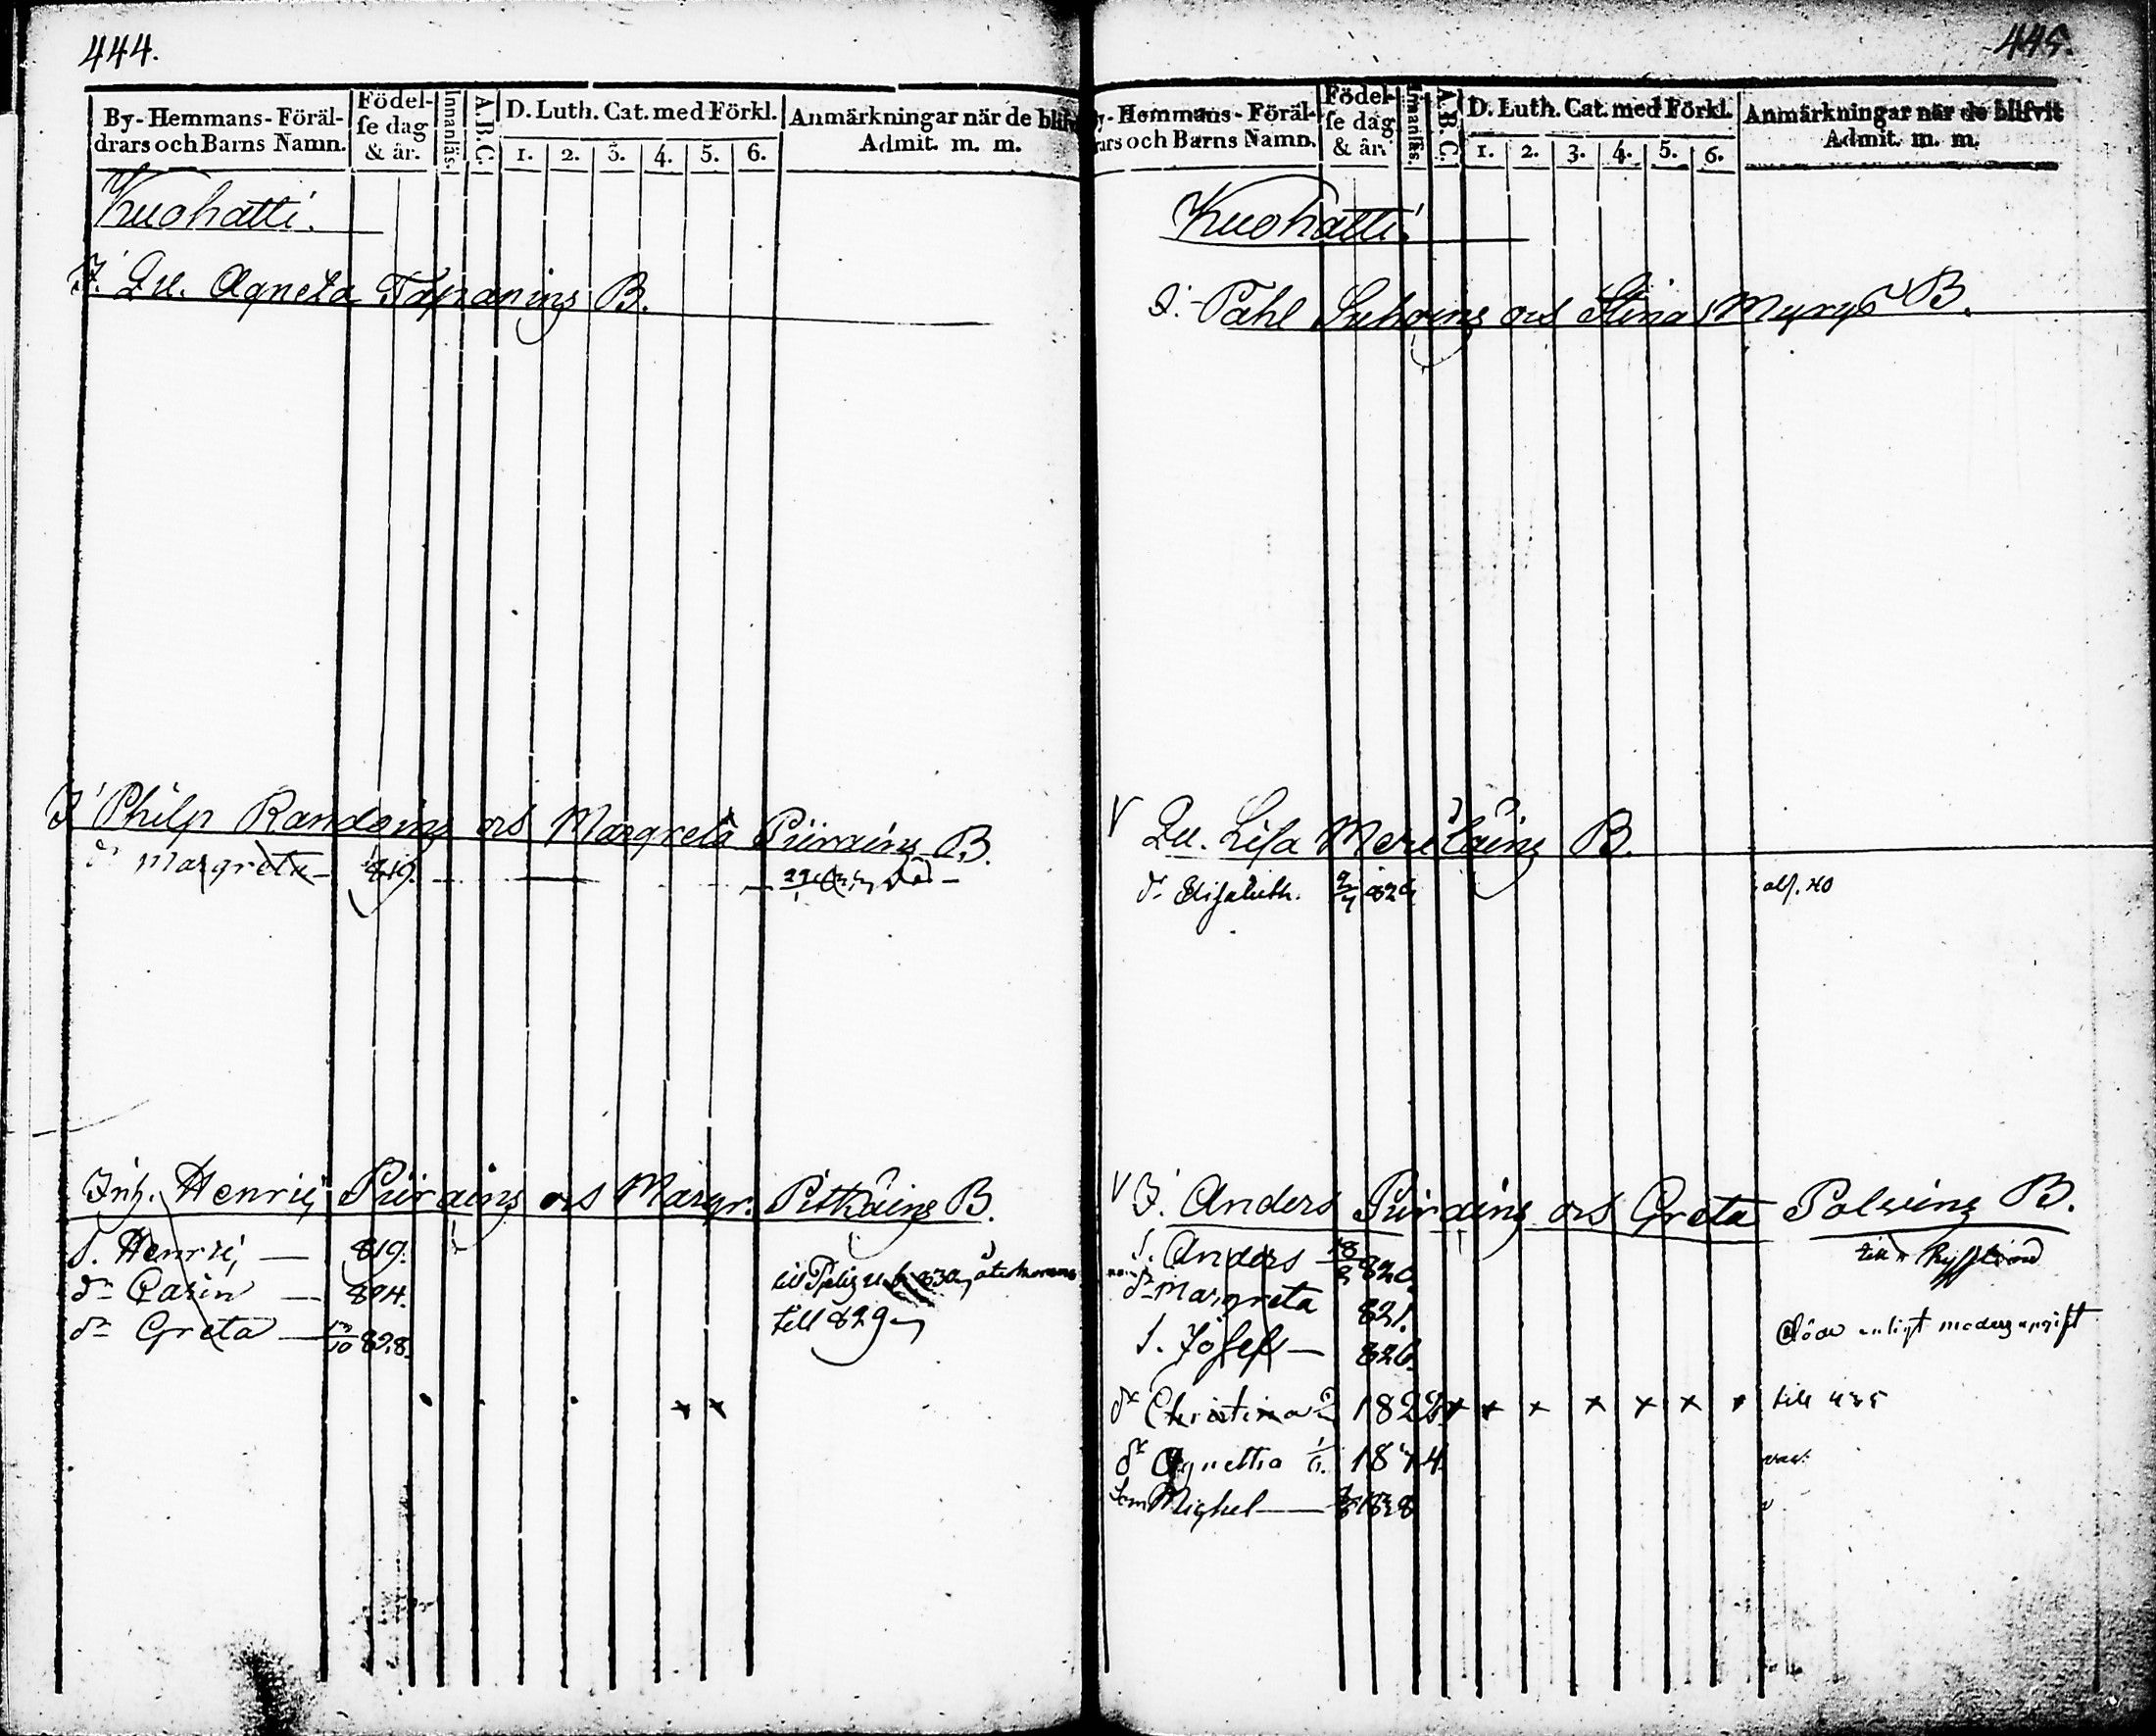 444.
By-Hemmans-Föräl-
drars och Barns Namn.
Födel-
se dag
& år.
Innanläs.
A.B.C.
D. Luth. Cat. med Förkl.
1. 2. 3. 4. 5. 6.
Anmärkningar när de
Admit. m. m.
Kuohatti.
I. Qu. Agneta Tapaning B.
I Philp Randoing ods Margreta Piiraing B.
dr Margreta 819.
Inh. Henric Piiraing ods Margr. Pitkäing B.
S. Henric, — 819.
dr Carin — 824.
till 830, återkommen
dr Greta — 828.
till 829
x x
445.
Hemmans-Föräl-
och Barns Namn.
Födel-
se dag
& år.
Innanläs.
A.B.C.
D. Luth. Cat. med Förkl.
1. 2. 3. 4. 5. 6.
Anmärkningar när de blifvit
Admit. m. m.
Kuohatti.
I. Påhl Suhoing ods Stina Myryr B.
V Qu. Lisa Meriläing B.
dr Elisabeth.
V I. Anders Piiraing ods Greta Polvuing B.
S. Anders 820
dr Margreta 821.
S. Josef — 826.
enligt
dr Christina 1822 x x x x x x x till
dr Agnetta
Son Michel